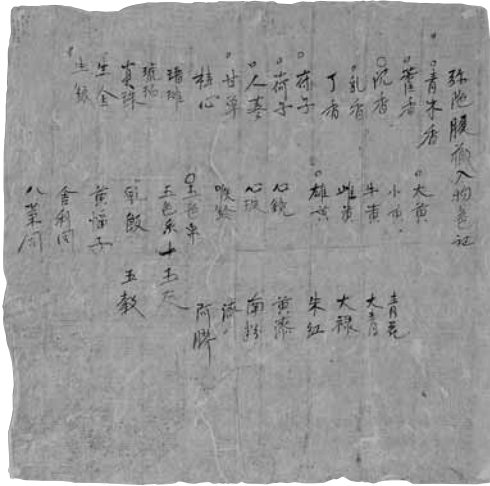 弥陁腹藏入物色記
青木香
藿香
沉香
乳香
丁香
荷子
人蔘
甘草
桂心
琥珀
真珠
生金
生銀
大黄
小黄
牛黄
雌黄
雄黄
心鏡
心珠
喉鈴
五色帛
五色糸十五尺
乳
五穀
黄幅子
舍利同
八葉同
青花
大青
大禄
朱紅
黄漆
南粉
漆
阿膠